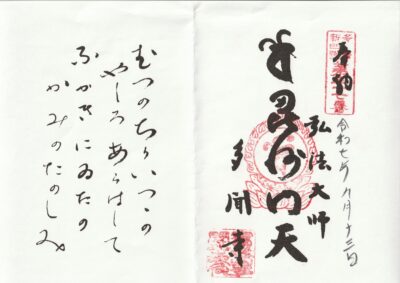 奉納
令和七年
十三日
弘法大師
毘沙門天
多聞寺
むつのちりいつゝの
やしろあらはして
ふかきにゐたの
かみのたのしみ